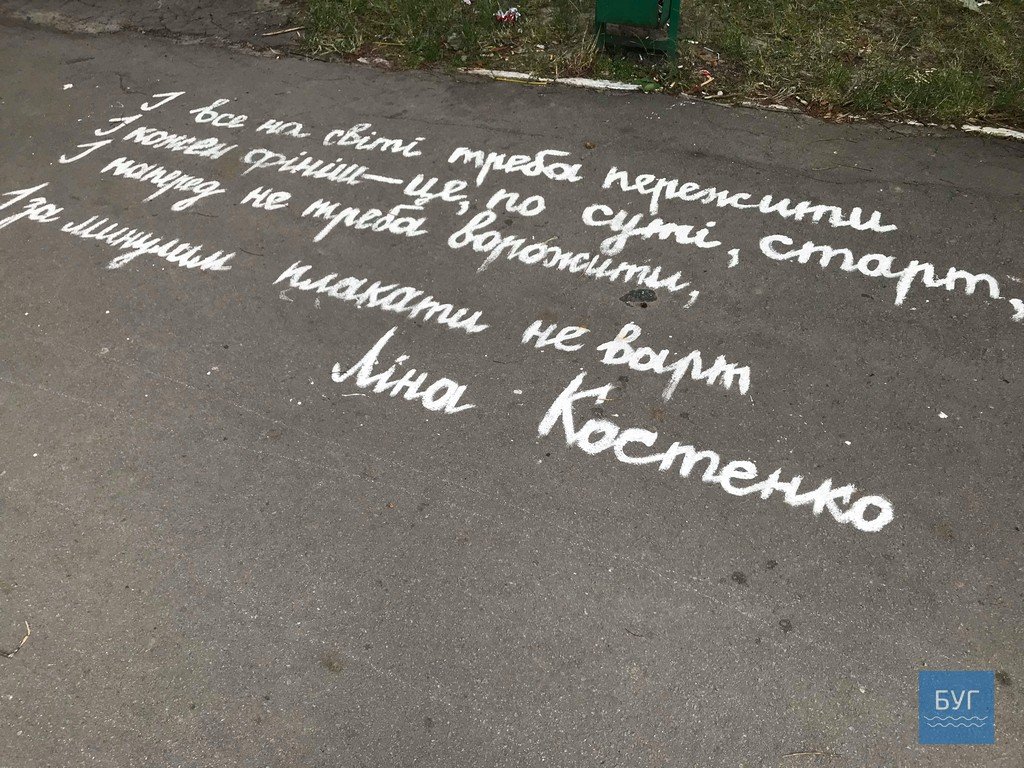 І все на світі треба пережити
І кожен фініш – це, по суті, старт,
І наперед не треба ворожити,
І за минулим плакати не варт
Ліна Костенко
БУГ